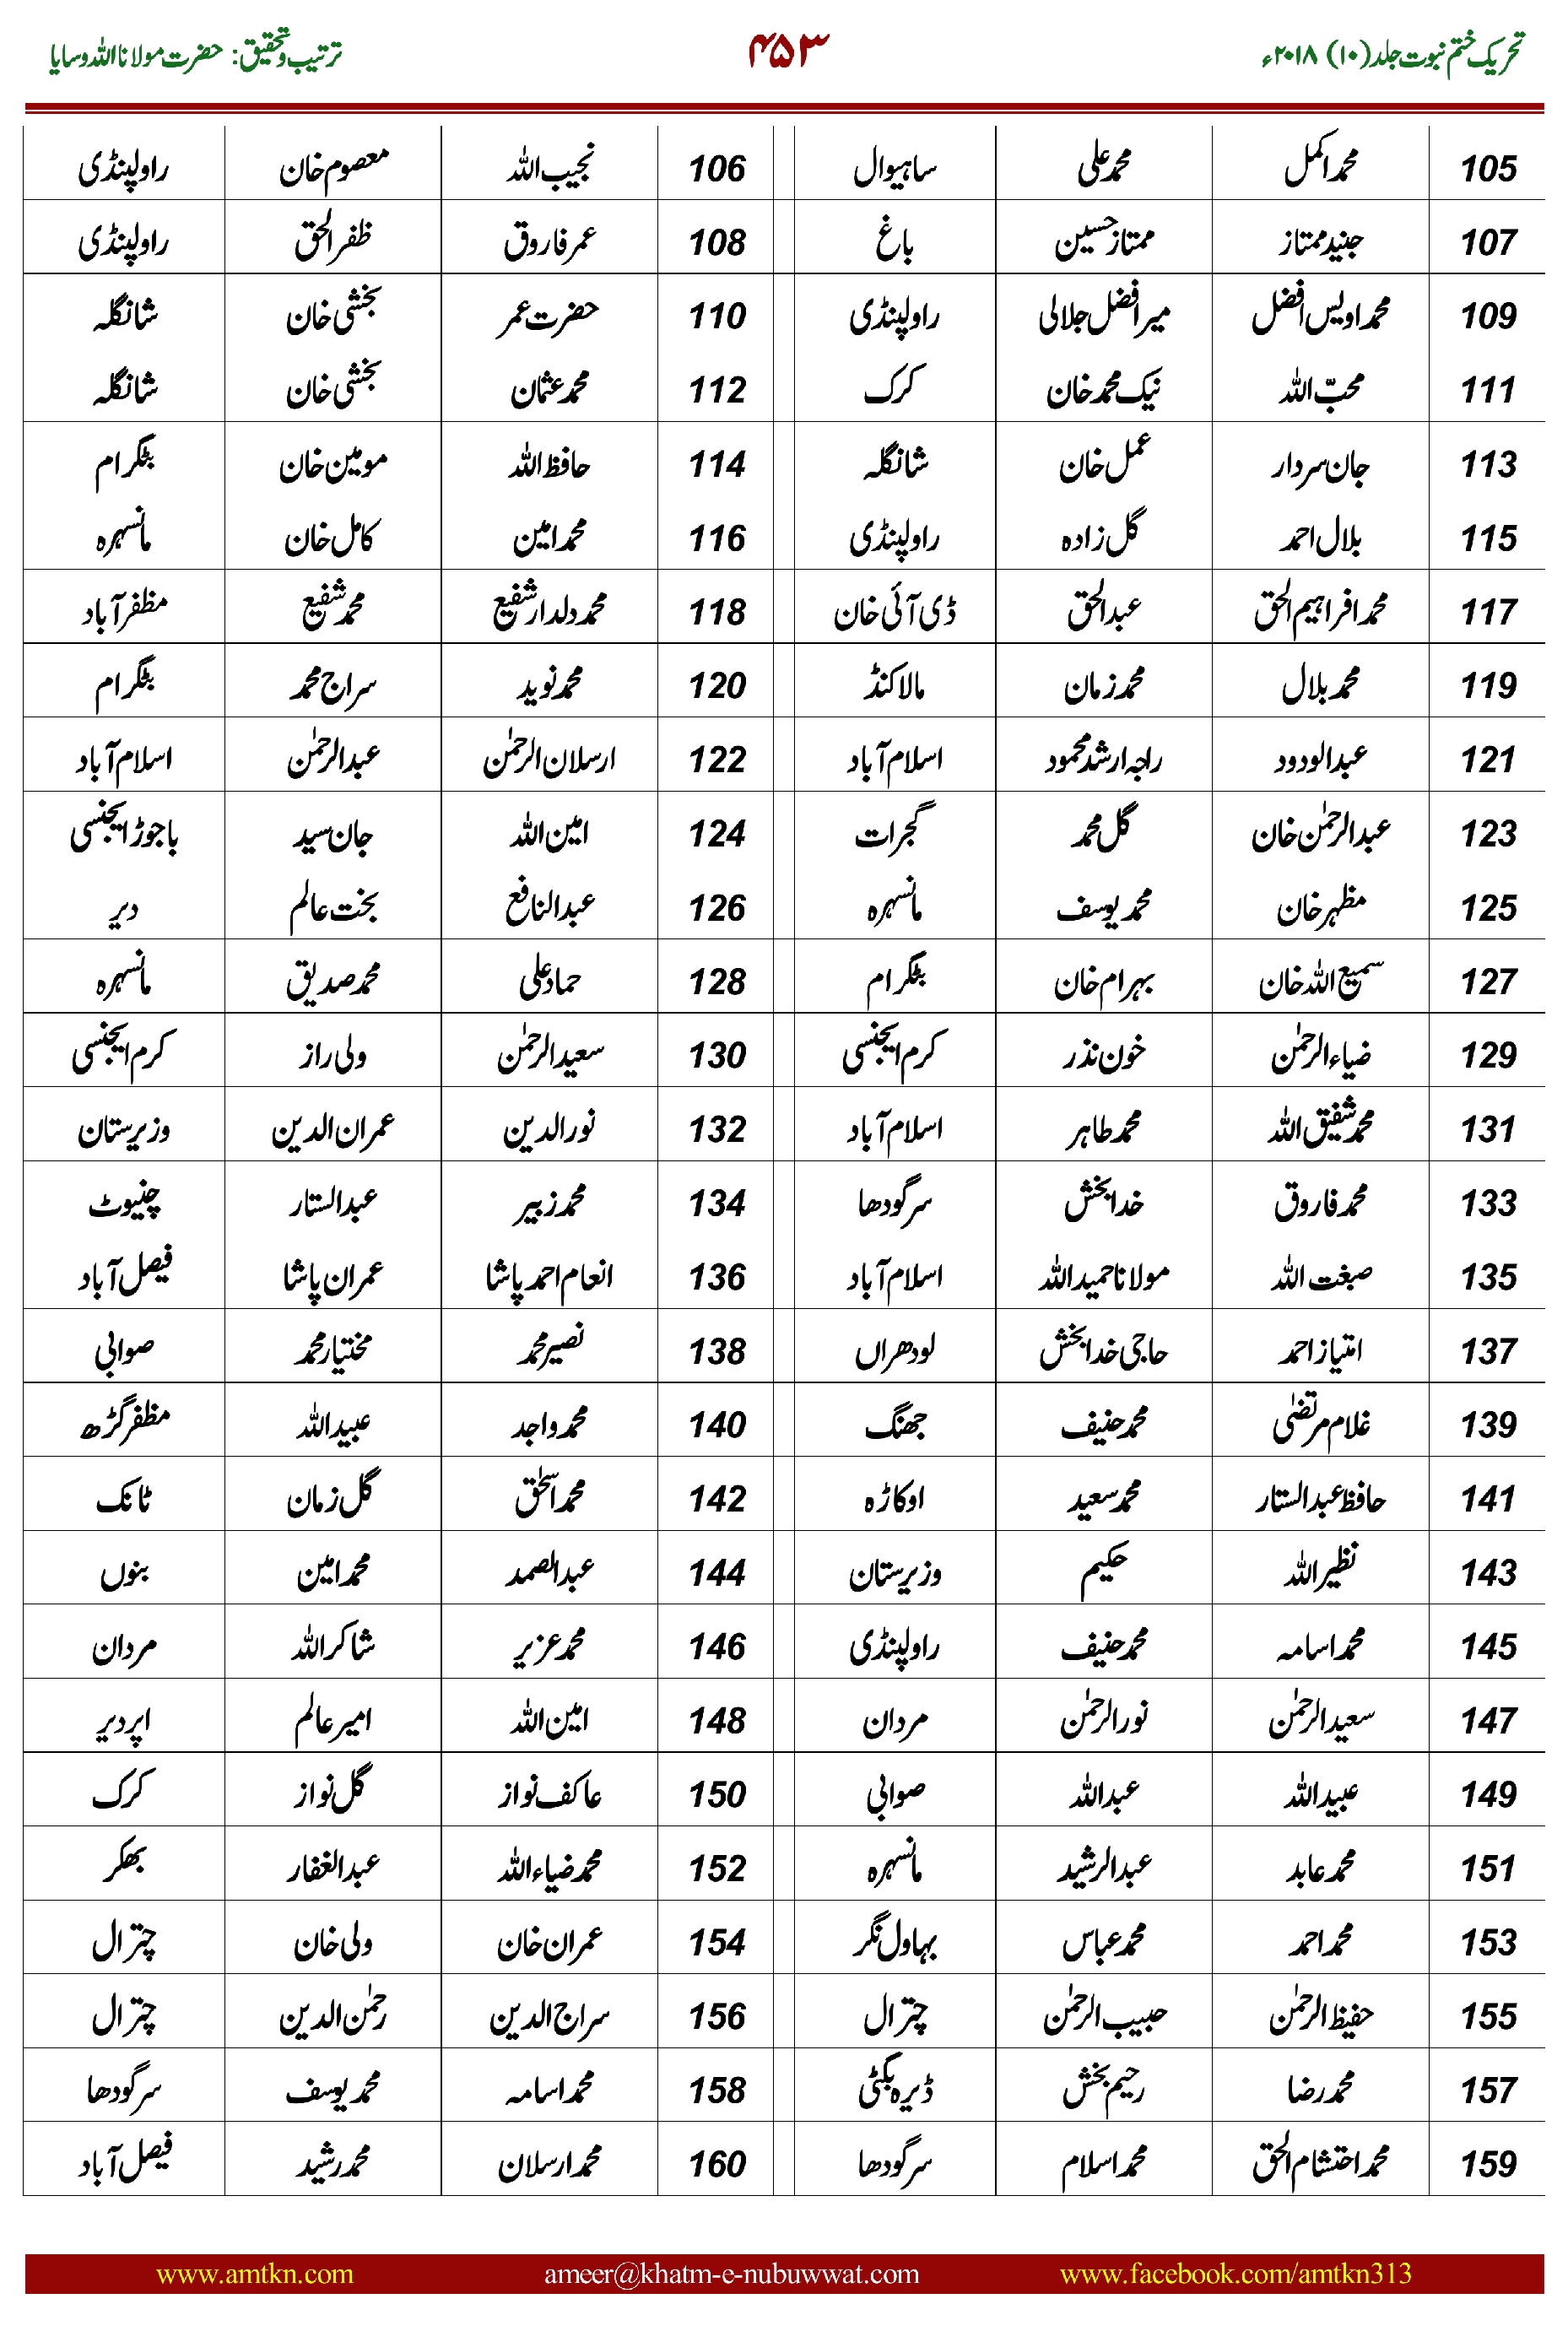 تحریک ختم نبوت جلد (۱۰) ۲۰۱۸ء ۴۵۳ ترتیب و تحقیق: حضرت مولانا اللہ وسایا
105 محمد اکمل محمد علی ساہیوال 106 نجیب اللہ معصوم خان راولپنڈی
107 جنید ممتاز ممتاز حسین باغ 108 عمر فاروق ظفر الحق راولپنڈی
109 محمد اویس افضل میر افضل جلالی راولپنڈی 110 حضرت عمر بخشی خان شانگلہ
111 محبّ اللہ نیک محمد خان کرک 112 محمد عثمان بخشی خان شانگلہ
113 جان سردار عمل خان شانگلہ 114 حافظ اللہ مومین خان بٹگرام
115 بلال احمد گل زادہ راولپنڈی 116 محمد امین کامل خان مانسہرہ
117 محمد افراہیم الحق عبدالحق ڈی آئی خان 118 محمد دلدار شفیع محمد شفیع مظفر آباد
119 محمد بلال محمد زمان مالاکنڈ 120 محمد نوید سراج محمد بٹگرام
121 عبدالودود راجہ ارشد محمود اسلام آباد 122 ارسلان الرحمٰن عبدالرحمٰن اسلام آباد
123 عبدالرحمٰن خان گل محمد گجرات 124 امین اللہ جان سید باجوڑ ایجنسی
125 مظہر خان محمد یوسف مانسہرہ 126 عبدالنافع بخت عالم دیر
127 سمیع اللہ خان بہرام خان بٹگرام 128 حماد علی محمد صدیق مانسہرہ
129 ضیاء الرحمٰن خون نذر کرم ایجنسی 130 سعید الرحمٰن ولی راز کرم ایجنسی
131 محمد شفیق اللہ محمد طاہر اسلام آباد 132 نور الدین عمران الدین وزیرستان
133 محمد فاروق خدا بخش سرگودھا 134 محمد زبیر عبدالستار چنیوٹ
135 صبغت اللہ مولانا حمید اللہ اسلام آباد 136 انعام احمد پاشا عمران پاشا فیصل آباد
137 امتیاز احمد حاجی خدا بخش لودھراں 138 نصیر محمد مختیار محمد صوابی
139 غلام مرتضیٰ محمد حنیف جھنگ 140 محمد واجد عبیداللہ مظفر گڑھ
141 حافظ عبدالستار محمد سعید اوکاڑہ 142 محمد اسحٰق گل زمان ٹانک
143 نظیر اللہ حکیم وزیرستان 144 عبدالصمد محمد امین بنوں
145 محمد اسامہ محمد حنیف راولپنڈی 146 محمد عزیر شاکر اللہ مردان
147 سعید الرحمٰن نور الرحمٰن مردان 148 امین اللہ امیر عالم اپر دیر
149 عبیداللہ عبداللہ صوابی 150 عاکف نواز گل نواز کرک
151 محمد عابد عبدالرشید مانسہرہ 152 محمد ضیاء اللہ عبدالغفار بھکر
153 محمد احمد محمد عباس بہاول نگر 154 عمران خان ولی خان چترال
155 حفیظ الرحمٰن حبیب الرحمٰن چترال 156 سراج الدین رحمٰن الدین چترال
157 محمد رضا رحیم بخش ڈیرہ بگٹی 158 محمد اسامہ محمد یوسف سرگودھا
159 محمد احتشام الحق محمد اسلام سرگودھا 160 محمد ارسلان محمد رشید فیصل آباد
www.amtkn.com ameer@khatm-e-nubuwwat.com www.facebook.com/amtkn313